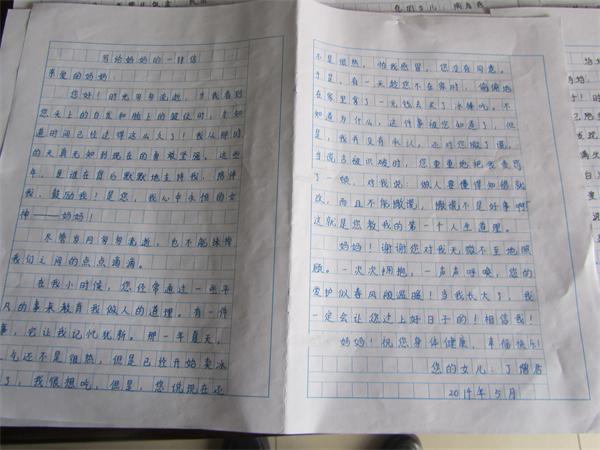 写给妈妈的一封信
亲爱的妈妈:
您好!时光匆匆流逝,当我看到
您头上的白发和脸上的皱纹时,才知
道时间已经过得这么久了!我从那时
的天真无知到现在的勇敢坚强,这些
年,是谁在背后默默地支持我,陪伴
我,鼓励我!是您,我心中永恒的女
神——妈妈!
尽管岁月匆匆流逝,也不能抹掉
我们之间的点点滴滴。
在我小时候,您经常通过一些平
凡的事来教育我做人的道理。有一件
事,它让我记忆犹新。那一年夏天,
气还不是很热,但是已经开始卖冰
了,我很想吃,但是,您说现在还
不是很热,怕我感冒,您没有同意。
于是,有一天趁您不在家时,偷偷地
在家里拿了一元钱去买了冰棒吃。不
知道为什么,这件事被您知道了,但
是,我并没有承认,还对您撒了谎。
当谎言被识破时,您重重地把我责骂
了一顿,对我说:做人要懂得知错就
改,而且不能撒谎,撒谎不是好事啊
这就是您教我的第一个人生道理。
妈妈!谢谢您对我无微不至地照
顾。一次次拥抱,一声声呼唤,您的
爱护似春风般温暖!当我长大了,我
一定会让您过上好日子的!相信我!
妈妈!祝您身体健康、幸福快乐!
您的女儿:丁
2014年5月